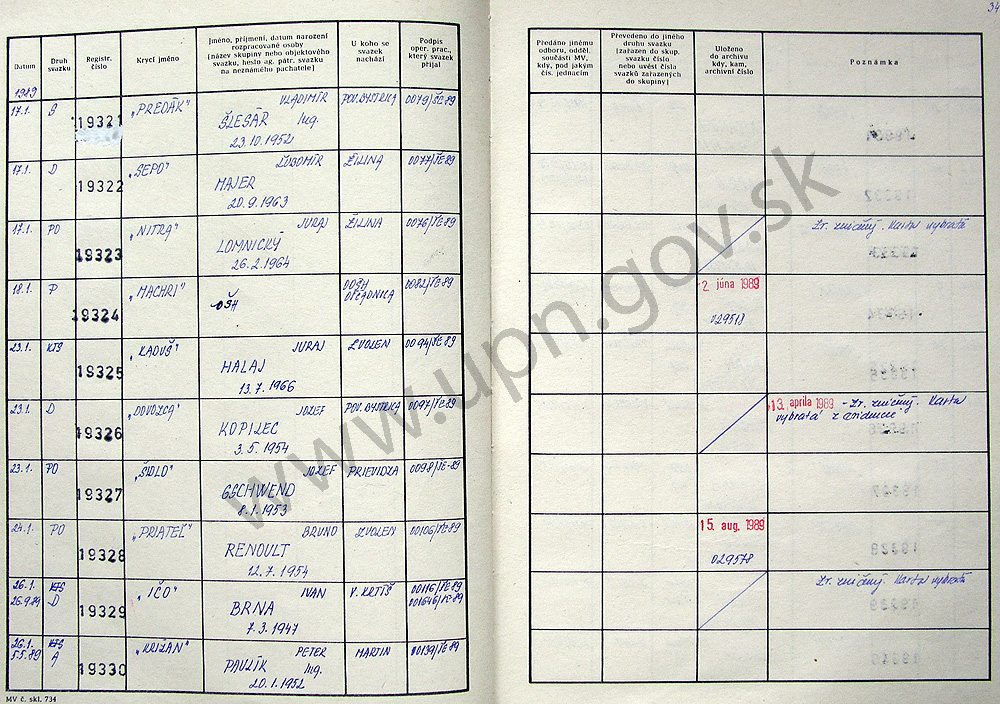 34
Datum
Druh svazku
Registr. číslo
Krycí jméno
Jméno, příjmení, datum narození rozpracované osoby
[název skupiny nebo objektového svazku, heslo ag. pátr. svazku na neznámého pachatele]
U koho se svazek nachází
Podpis oper. prac., který svazek přijal
Předáno jinému odboru, odděl. součásti MV, kdy, pod jakým čís. jednacím
Převedeno do jiného druhu svazku [zařazen do skup. svazku číslo nebo uvést čísla svazků zařazených do skupiny]
Uloženo do archivu kdy, kam, archivní číslo
Poznámka
1989
17.1. 19321 „PREDÁK" VLADIMÍR POV. BYSTRICA 0079/ŠE-89
ŠLESÁR Ing.
23.10.1952
17.1. D 19322 „SEPO" ĽUBOMÍR ŽILINA 0077/ŠE-89
MAJER
20.9.1963
17.1. PO 19323 „NITRA" JURAJ ŽILINA 0076/ŠE-89
LOMNICKÝ
26.2.1964
Zv. zničený. Karta vybratá
18.1. P 19324 „MACHRI" OŠH 0082/ŠE-89
2. júna 1989
029518
23.1. KTS 19325 „KADUŠ" JURAJ ZVOLEN 0094/ŠE-89
HALAJ
13.7.1966
23.1. D 19326 JOZEF POV. BYSTRICA 0097/ŠE-89
KOPILEC
3.5.1954
13. apríla 1989 - Zv. zničený. Karta
vybratá z evidencie
23.1. PO 19327 „ŠIDLO" JOZEF PRIEVIDZA 0098/ŠE-89
GSCHWEND
8.1.1953
24.1. PO 19328 „PRIATEĽ" BRUNO ZVOLEN 00106/ŠE-89
RENOULT
12.7.1954
15. aug. 1989
029578
26.1. KTS 19329 „IČO" IVAN V. KRTÍŠ 00116/ŠE-89
26.9.89 D 001646/ŠE-89
BRNA
7.3.1947
Zv. zničený. Karta vybratá
26.1. KTS 19330 „KRIŽAN" PETER MARTIN 00139/ŠE-89
5.5.89 A
PAVLÍK Ing.
20.1.1952
MV č. skl. 734
www.upn.gov.sk